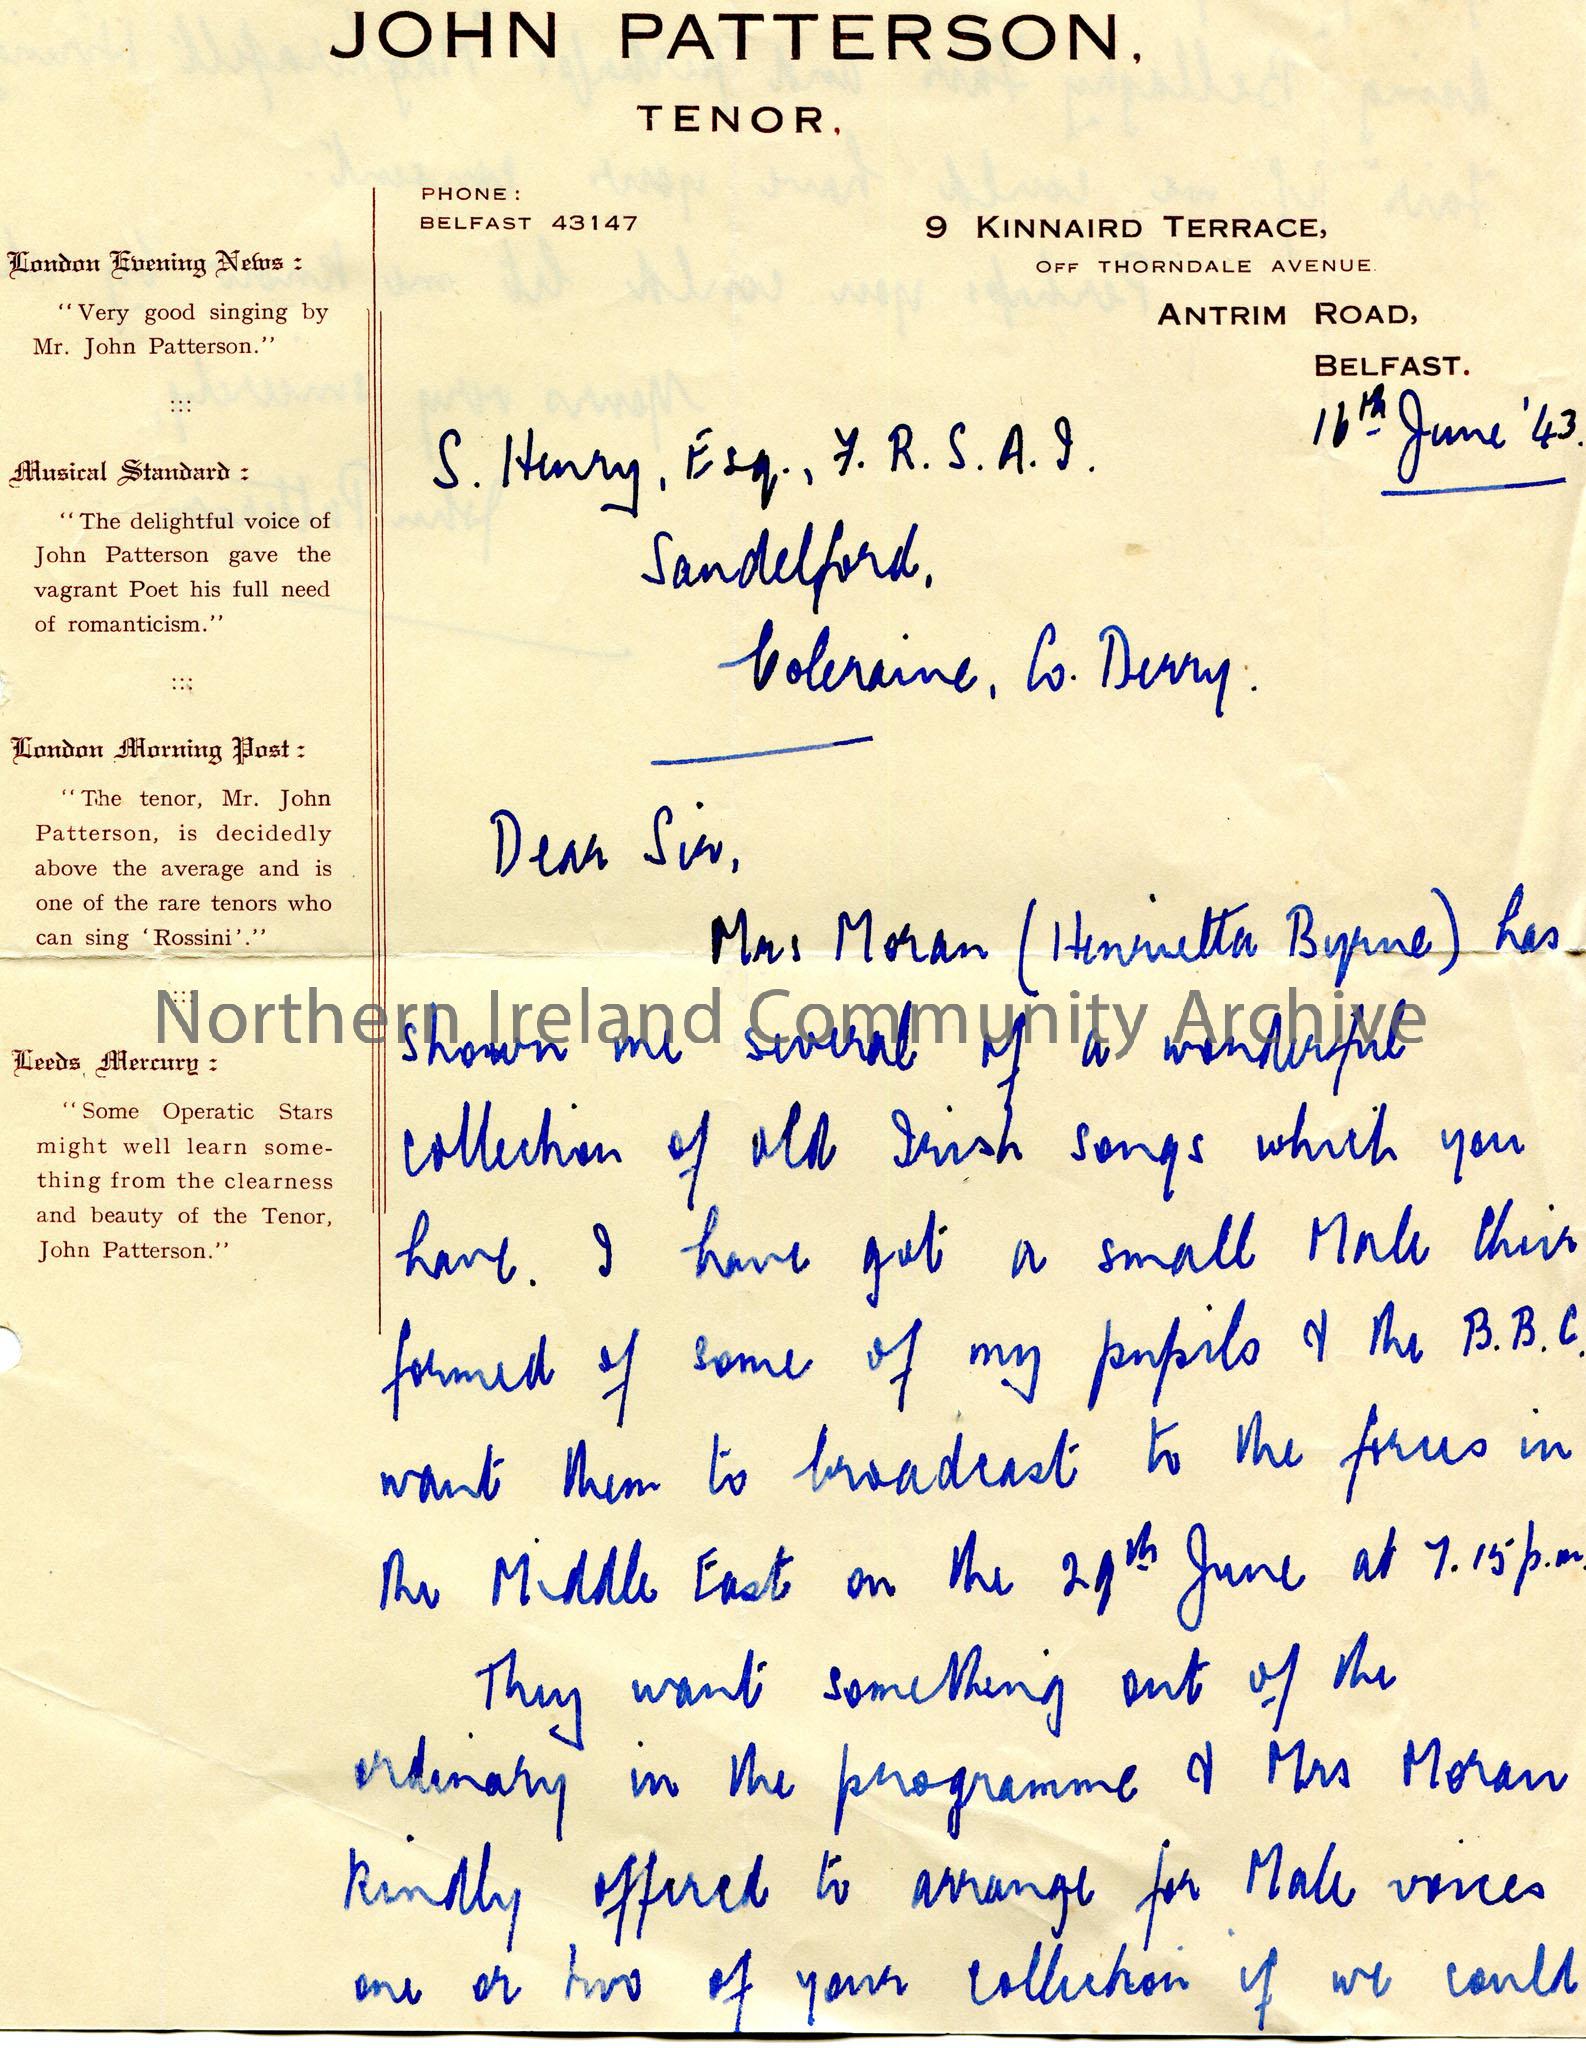 JOHN PATTERSON,
TENOR,
PHONE:
BELFAST 43147
9 KINNAIRD TERRACE,
OFF THORNDALE AVENUE.
ANTRIM ROAD,
BELFAST.
London Evening News:
"Very good singing by
Mr. John Patterson."
:::
Musical Standard:
"The delightful voice of
John Patterson gave the
vagrant Poet his full need
of romanticism."
:::
London Morning Post:
"The tenor, Mr. John
Patterson, is decidedly
above the average and is
one of the rare tenors who
can sing 'Rossini'."
:::
Leeds Mercury:
"Some Operatic Stars
might well learn some-
thing from the clearness
and beauty of the Tenor,
John Patterson."
16th June '43.
S. Henry, Esq., F. R. S. A. I.
Sandelford,
Coleraine, Co. Derry.
Dear Sir,
Mrs Moran (Henrietta Byrne) has
Northern Ireland Community Archive
shown me several of a wonderful
collection of old Irish songs which you
have. I have got a small Male Choir
formed of some of my pupils & the B.B.C.
want them to broadcast to the forces in
the Middle East on the 29th June at 7.15 p.m.
They want something out of the
ordinary in the programme & Mrs Moran
kindly offered to arrange for Male voices
one or two of your collection if we could